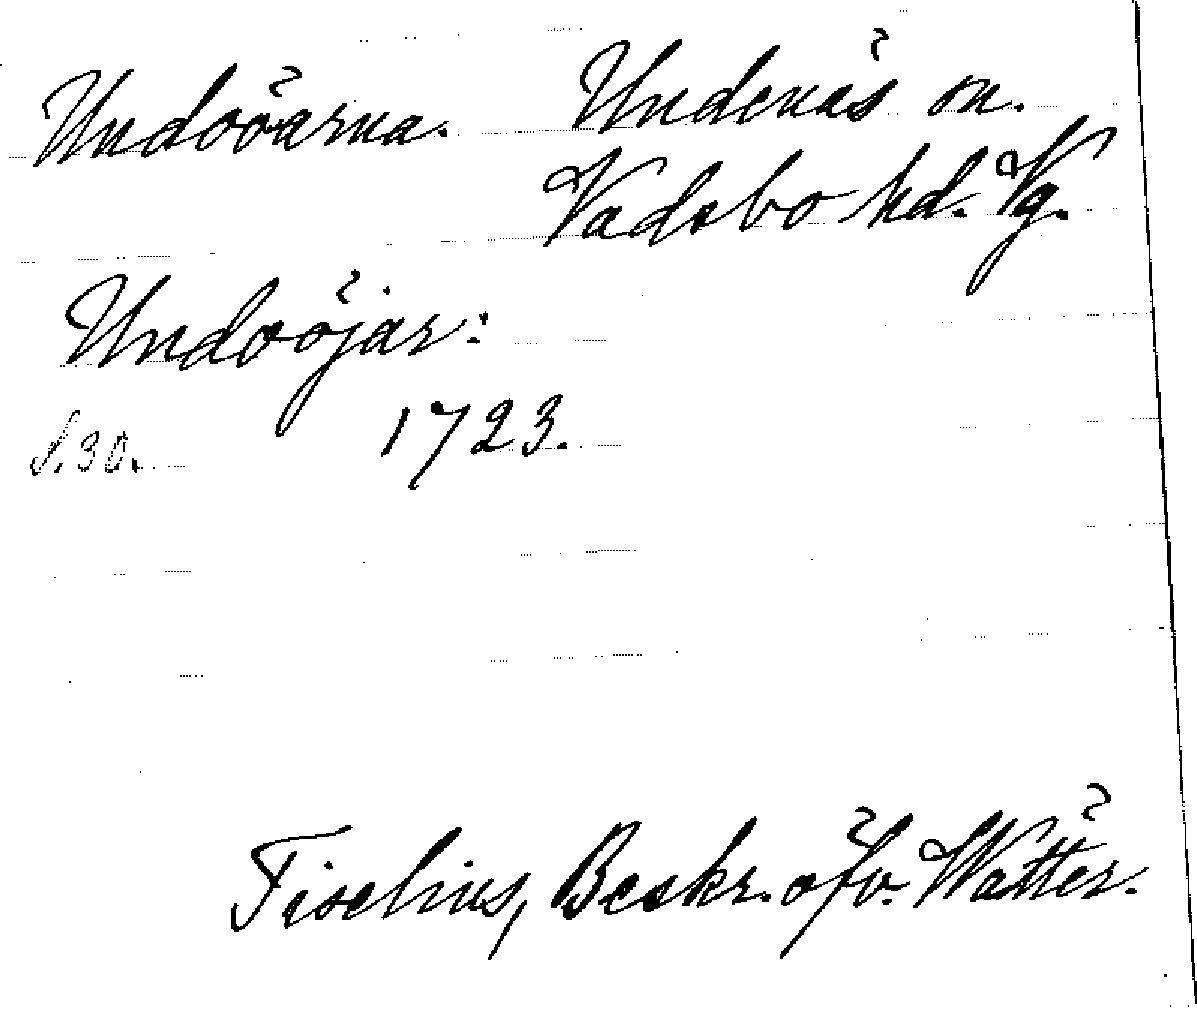 Undoöarna. Undenäs sn.
Vadsbo hd. Vg.
Undoöjar:
S. 30. 1723.
Tiselius, Beskr. öfv. Wätter.